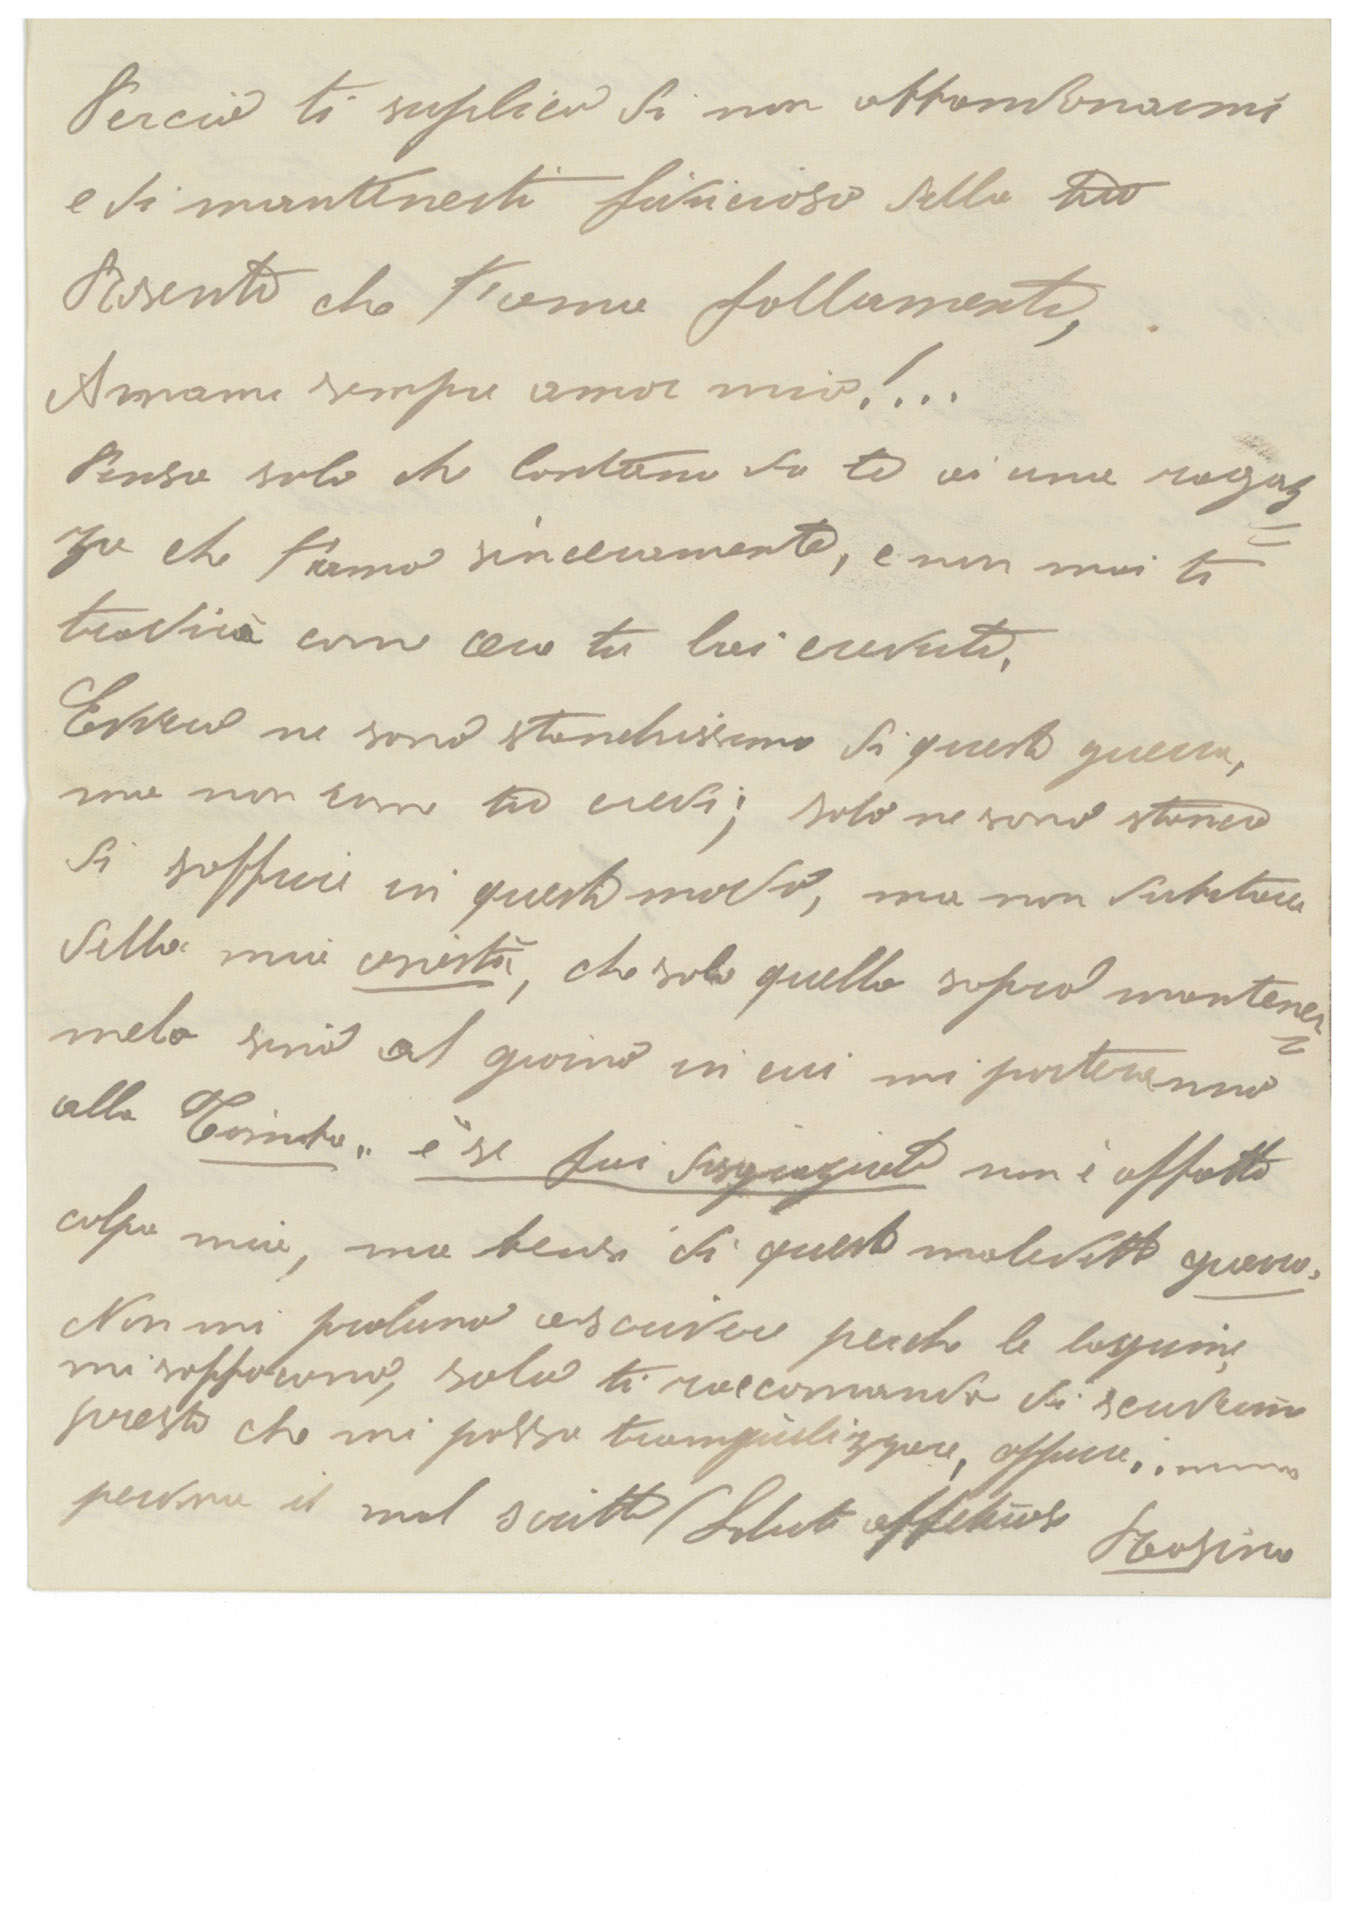 Perciò ti suplico di non abbandonarmi
e di mantenerti fiducioso della tua
che t'ama follamente,
Amami sempre amor mio!...
Pensa solo che lontano da te ai una ragaz=
za che t'ama sinceramente, e non mai ti
tradirà come ora tu hai creduto,
Evvero ne sono stanchissima di questa guerra,
ma non come tu credi; solo ne sono stanca
di soffrire in questo modo, ma non dubitare
della mia onestà, che solo quella saprò mantener=
mela sino al giorno in cui mi porteranno
alla Tomba,, e se fui disgraziata non è affatto
colpa mia, ma bensi di questa maledetta guerra.
Non mi prolungo a scrivere perche le lagrime
mi soffocano, solo ti raccomando di scrivermi
presto che mi possa tranquilizzare, oppure...
perdona il mal scritto Saluti affettuosi Rosina